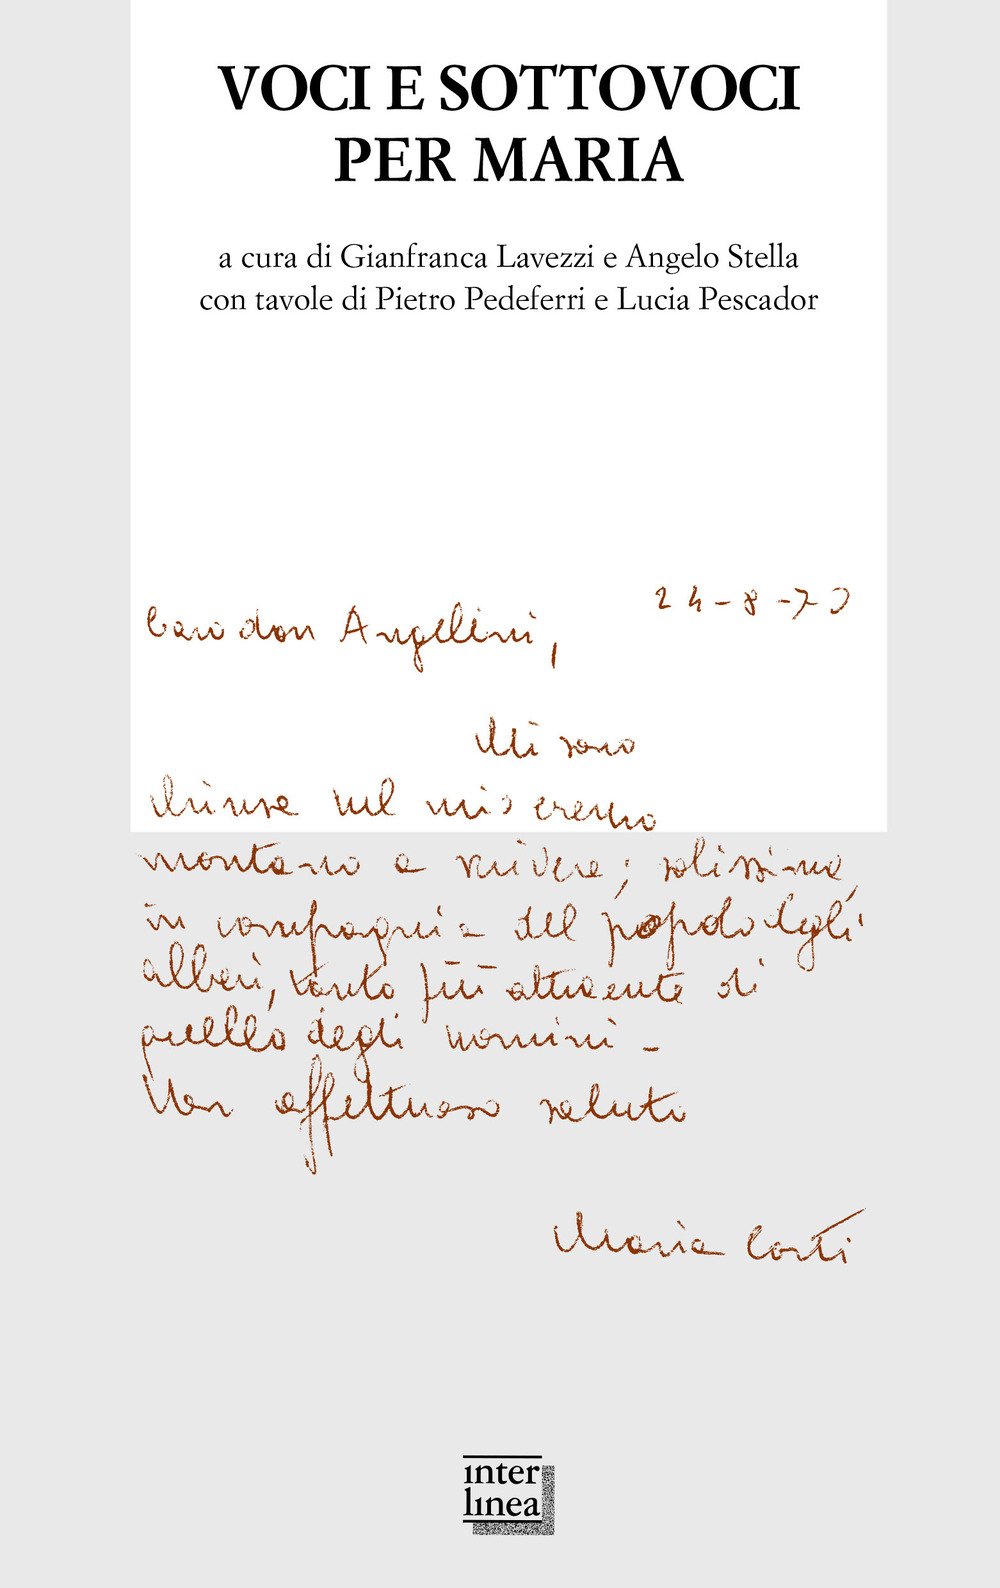 VOCI E SOTTOVOCI
PER MARIA
a cura di Gianfranca Lavezzi e Angelo Stella
con tavole di Pietro Pedeferri e Lucia Pescador
24-8-70
Caro don Angelini,
Mi sono
chiusa nel mio eremo
montano a scrivere; solissima,
in compagnia del popolo degli
alberi, tanto più attraente di
quello degli uomini -
Un affettuoso saluto
Maria Corti
inter
linea